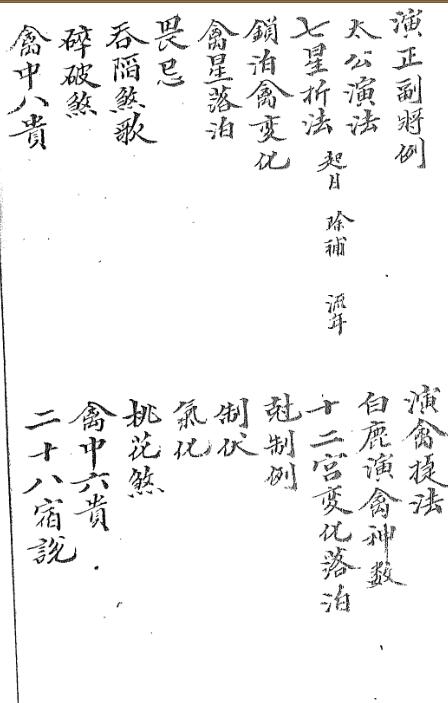 演正副將例
演禽捷法
太公演法
白鹿演禽神数
七星折法 起月 除補 流年
十二宮変化落泊
鎖泊禽変化
尅制例
禽星落泊
制伏
畏忌
氣化
吞陷煞歌
桃花煞
碎破煞
禽中六貴
禽中八貴
二十八宿說